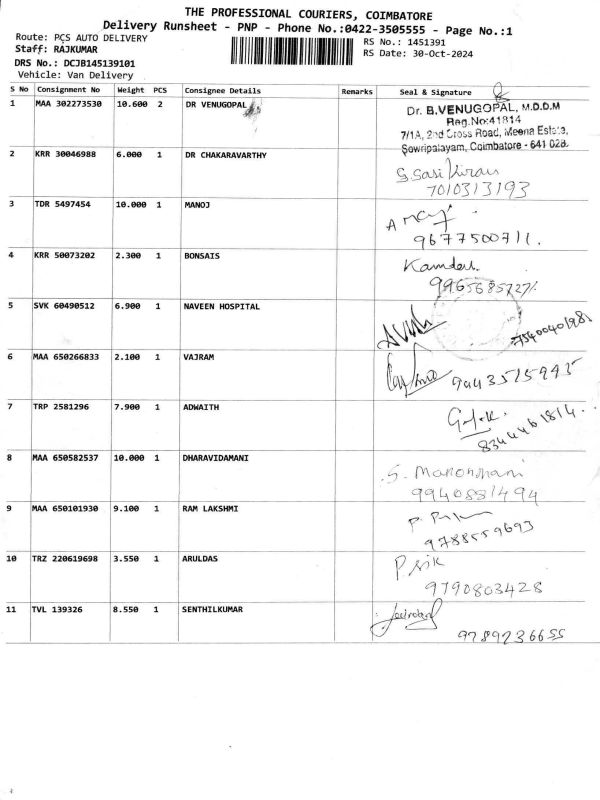 THE PROFESSIONAL COURIERS, COIMBATORE
Delivery Runsheet - PNP - Phone No.:0422-3505555 - Page No.:1
Route: PCS AUTO DELIVERY
RS No.: 1451391
Staff: RAJKUMAR
RS Date: 30-Oct-2024
DRS No.: DCJB145139101
Vehicle: Van Delivery
S No Consignment No Weight PCS Consignee Details Remarks Seal & Signature
1 MAA 302273530 10.600 2 DR VENUGOPAL
Dr. B.VENUGOPAL, M.D.D.M
Reg.No:41814
7/1A, 2nd Cross Road, Meena Estate,
Sowripalayam, Coimbatore - 641 028.
2 KRR 30046988 6.000 1 DR CHAKARAVARTHY
S. Sasi Kiran
7010313193
3 TDR 5497454 10.000 1 MANOJ
9677500711.
4 KRR 50073202 2.300 1 BONSAIS
5 SVK 60490512 6.900 1 NAVEEN HOSPITAL
7540040198
6 MAA 650266833 2.100 1 VAJRAM
9443515995
7 TRP 2581296 7.900 1 ADWAITH
8344461814.
8 MAA 650582537 10.000 1 DHARAVIDAMANI
9940881494
9 MAA 650101930 9.100 1 RAM LAKSHMI
9788559693
10 TRZ 220619698 3.550 1 ARULDAS
9790803428
11 TVL 139326 8.550 1 SENTHILKUMAR
9789236655